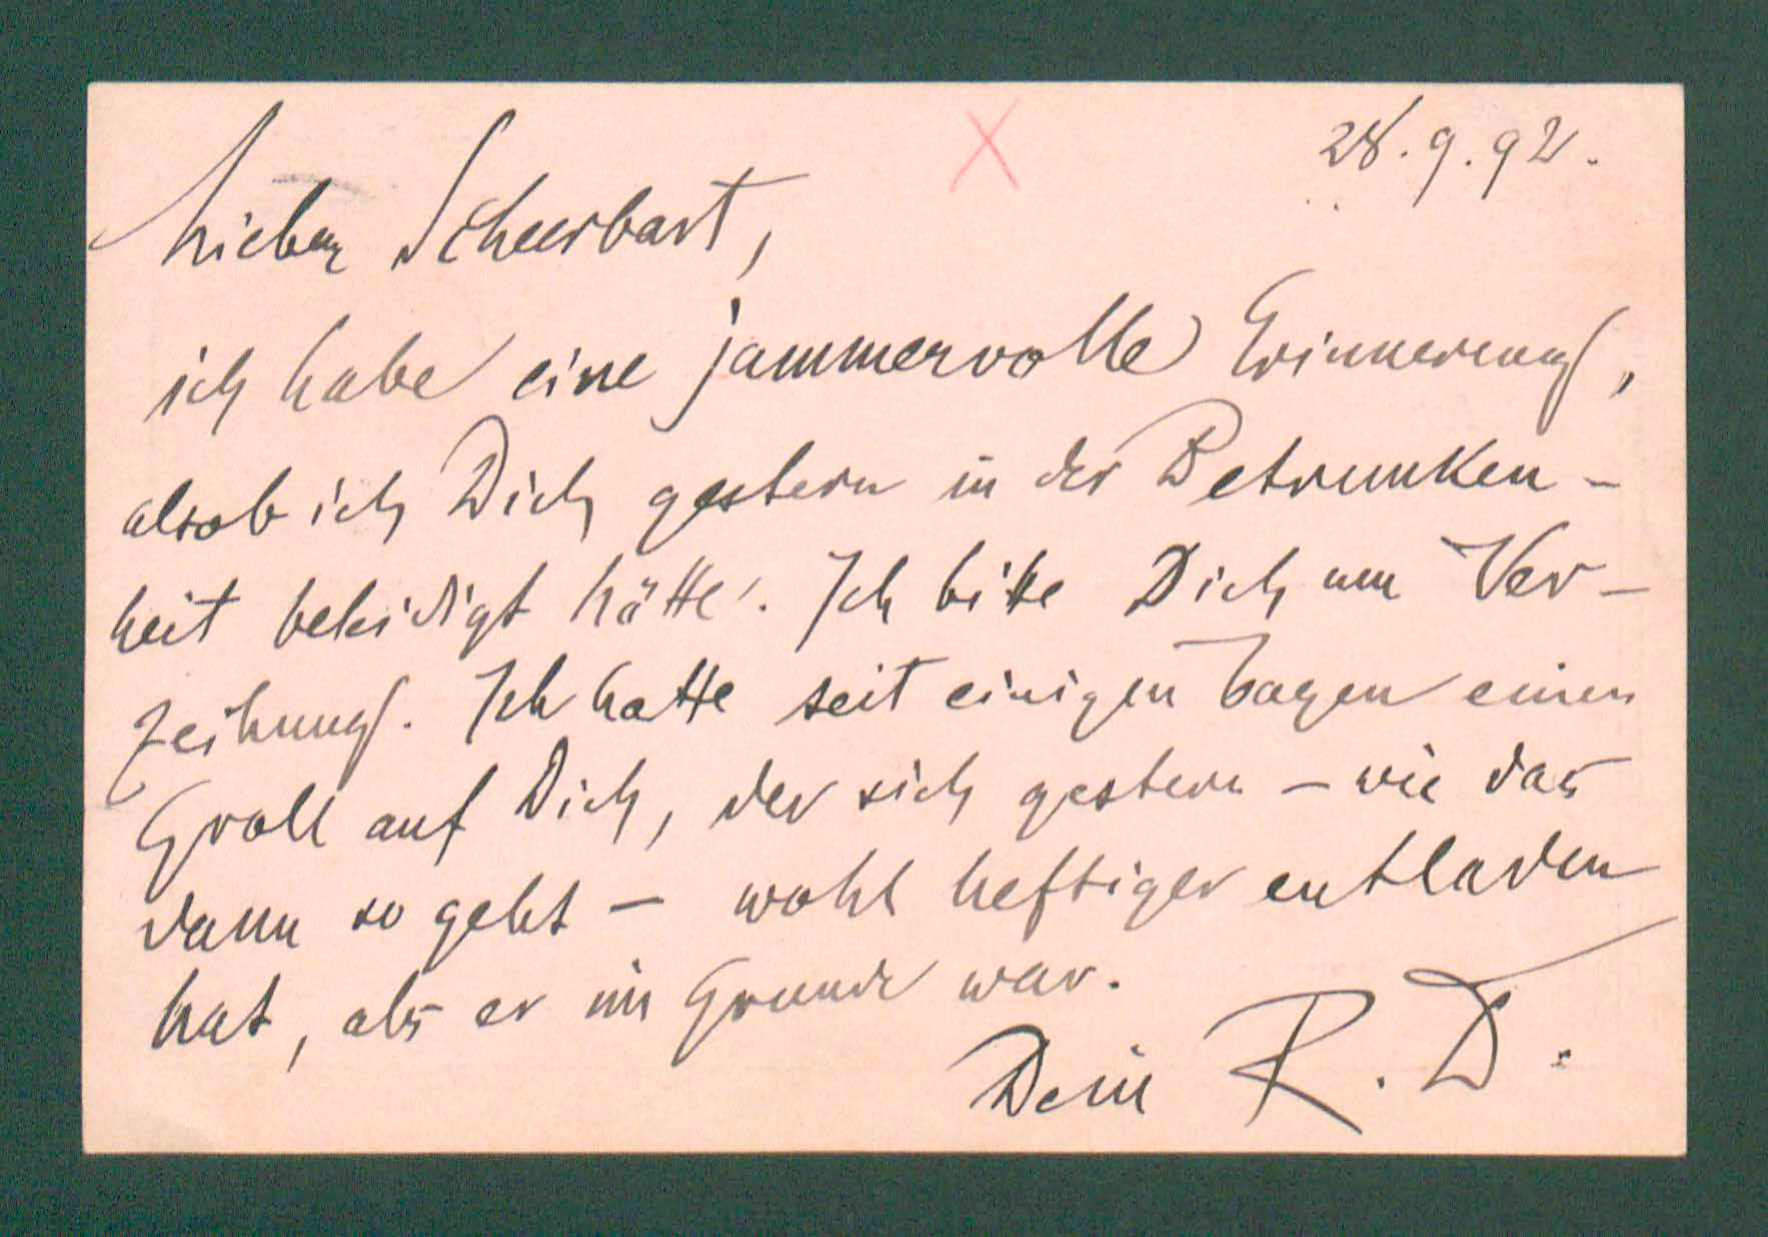 28.9.92.
Lieber Scheerbart,
ich habe eine jammervolle Erinnerung,
alsob ich Dich gestern in der Betrunken-
heit beleidigt hätte. Ich bitte Dich um Ver-
zeihung. Ich hatte seit einigen Tagen einen
Groll auf Dich, der sich gestern – wie das
dann so geht – wohl heftiger entladen
hat, als er im Grunde war.
Dein R. D.